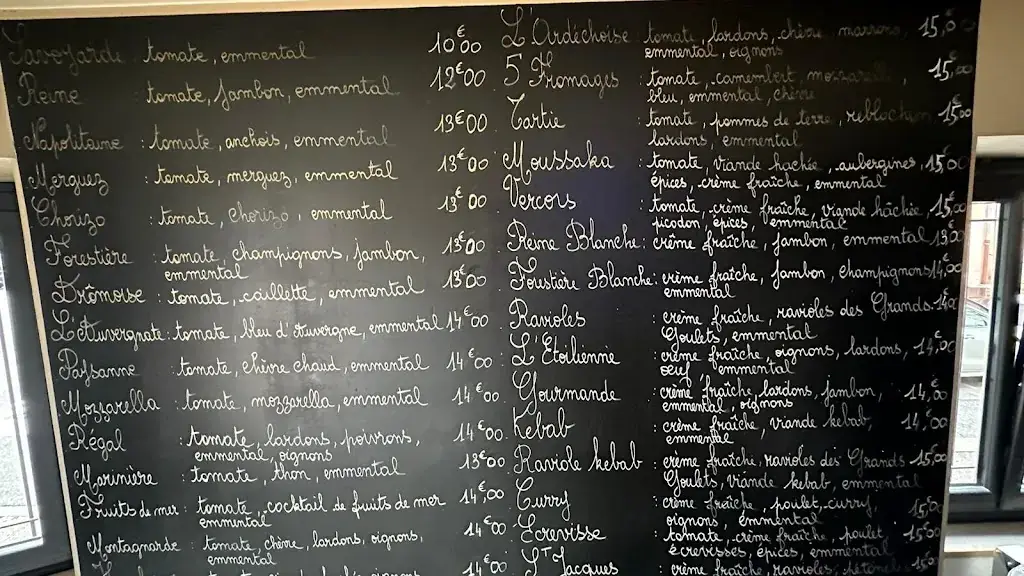 Savoyarde : tomate, emmental 10€00
Reine : tomate, jambon, emmental 12€00
Napolitaine : tomate, anchois, emmental 13€00
Merguez : tomate, merguez, emmental 13€00
Chorizo : tomate, chorizo, emmental 13€00
Forestière : tomate, champignons, jambon, 13€00
emmental
Drômoise : tomate, caillette, emmental 13€00
L'Auvergnate : tomate, bleu d'Auvergne, emmental 14€00
Paysanne : tomate, chèvre chaud, emmental 14€00
Mozzarella : tomate, mozzarella, emmental 14€00
Régal : tomate, lardons, poivrons, 14€00
emmental, oignons
Marinière : tomate, thon, emmental 13€00
Fruits de mer : tomate, cocktail de fruits de mer 14€,00
emmental
Montagnarde : tomate chèvre, lardons, oignons, 14€00
emmental
14€00
L'Ardéchoise : tomate, lardons, chèvre, marrons, 15,00
emmental, oignons
5 Fromages : tomate, camembert, mozzarella, 15,€00
bleu, emmental, chèvre
Tartie : tomate, pommes de terre, reblochon 15,€00
lardons, emmental
Moussaka : tomate, viande hachée, aubergines, 15,€00
épices, crème fraîche, emmental
Vercors : tomate, crème fraîche, viande hâchée, 15,€00
picodon, épices, emmental
Reine Blanche : crême fraîche, jambon, emmental 13,€00
Forestière Blanche : crème fraîche, jambon, champignons 14,€00
emmental
Ravioles : crème fraîche, ravioles des Grands 14,€00
Goulets, emmental
L'Étoilienne : crème fraîche, oignons, lardons, 14,€00
oeuf, emmental
Gourmande : crème fraîche, lardons, jambon, 14,€00
emmental, oignons
Kebab : crème fraîche, viande kebab, 14,€00
emmental
Raviole kebab : crème fraîche, ravioles des Grands 15,€00
Goulets, viande kebab, emmental
Curry : crème fraîche, poulet, curry, 15,€00
oignons, emmental
Écrevisse : tomate, crème fraîche, poulet 15,€00
écrevisses, épices, emmental
St Jacques : crème fraîche, ravioles, pétoncles